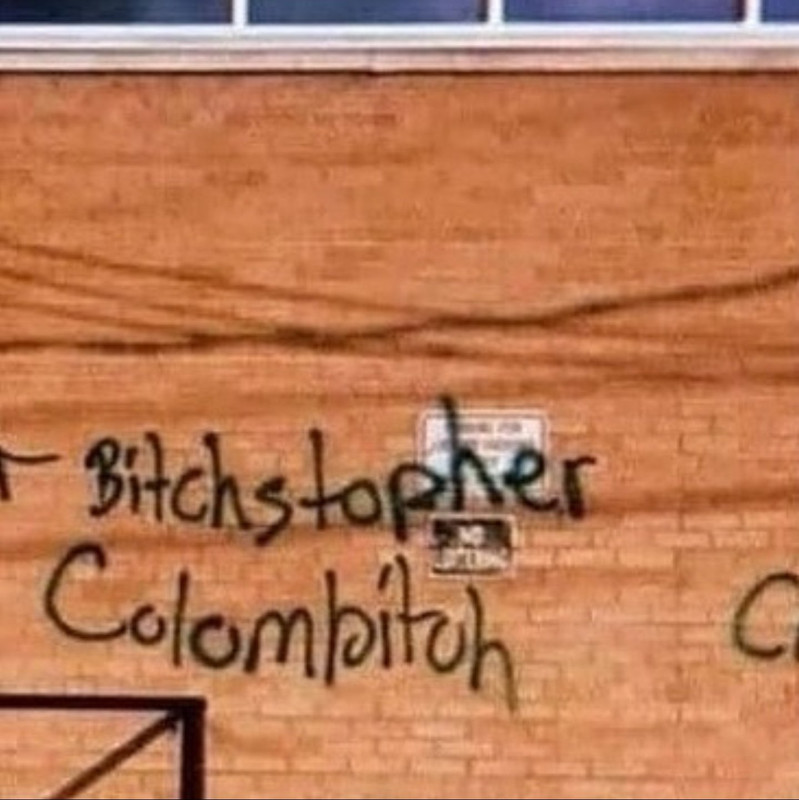 Bitchstopher
Colombitch